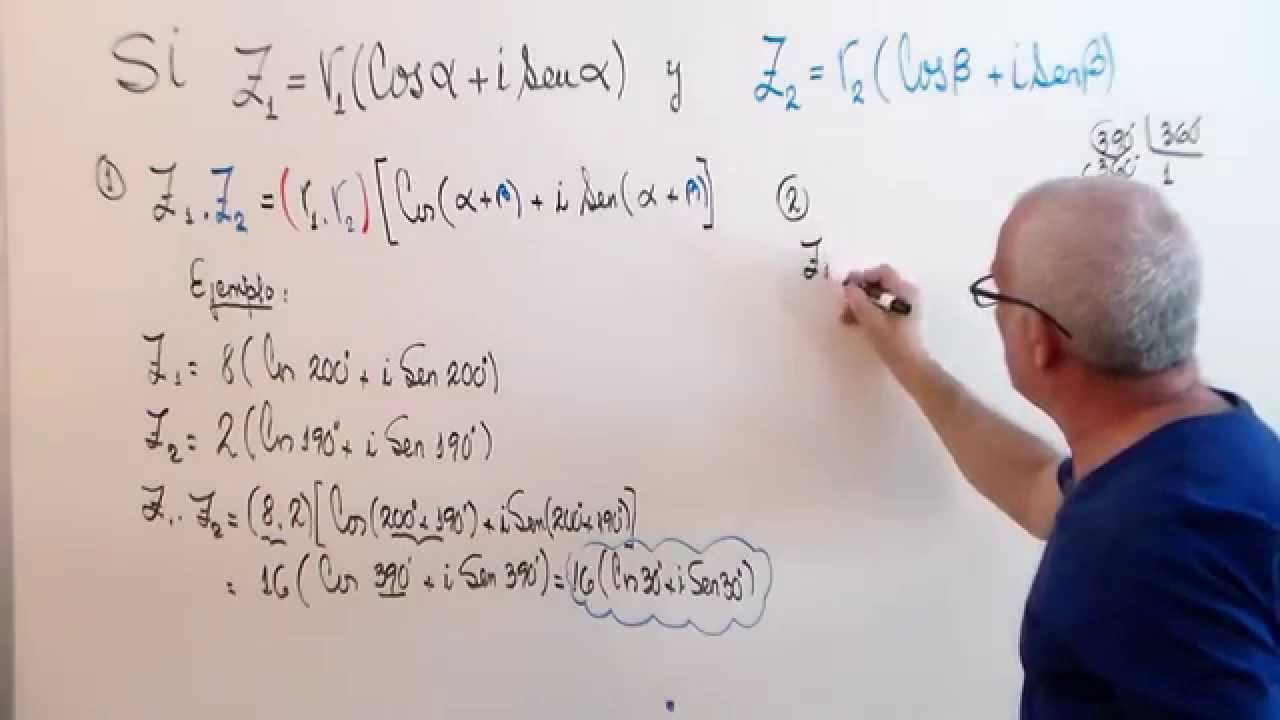 Si Z₁ = r₁(Cosα + i Senα) y Z₂ = r₂(Cosβ + i Senβ)
390° | 360°
-360° 1
① Z₁.Z₂ = (r₁.r₂)[Cos(α+β) + i Sen(α+β)]
②
Z₁
Ejemplo:
Z₁ = 8(Cos 200° + i Sen 200°)
Z₂ = 2(Cos 190° + i Sen 190°)
Z₁.Z₂ = (8.2)[Cos(200°+190°) + i Sen(200°+190°)]
= 16(Cos 390° + i Sen 390°) = 16(Cos 30° + i Sen 30°)